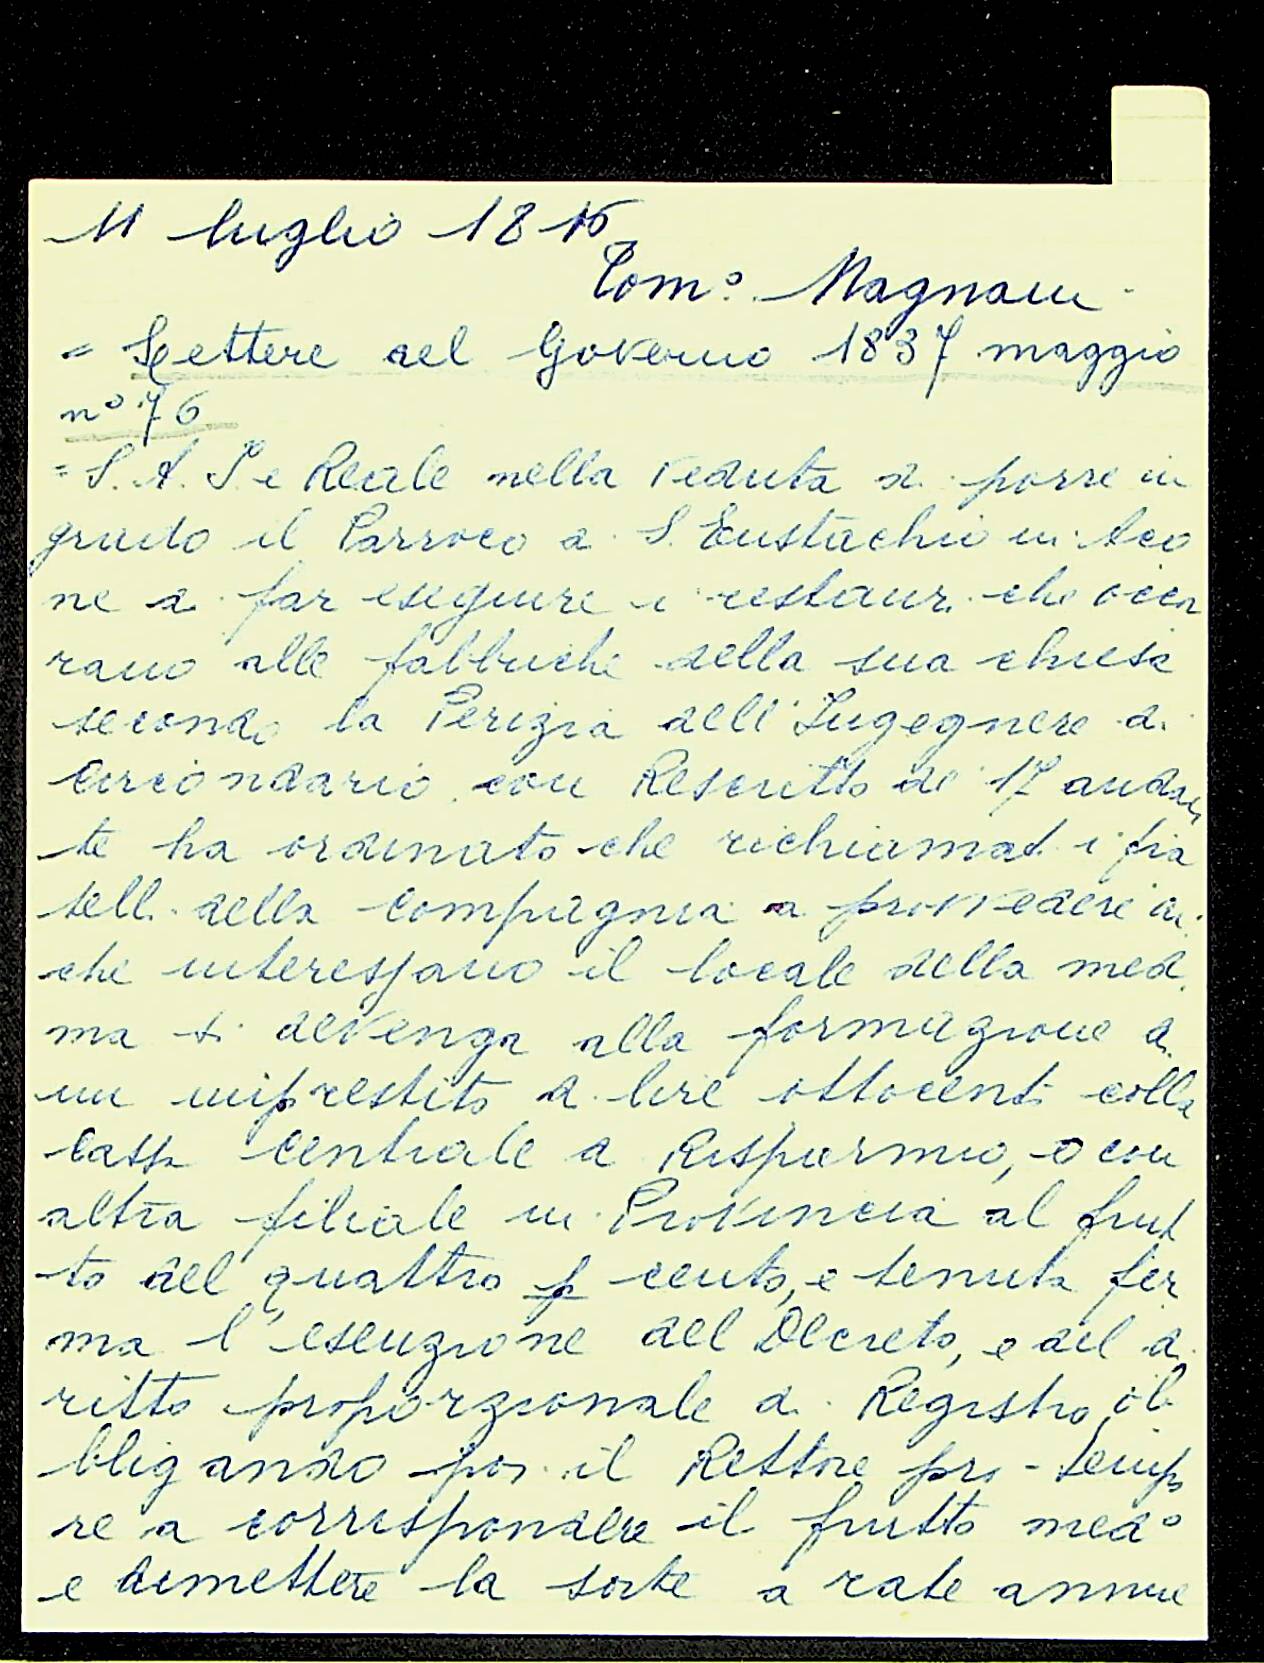 11 luglio 1816
Tom.º Magnani
= Lettere del Governo 1837 maggio
nº 76
= S. A. I. e Reale nella veduta di porre in
grado il Parroco di S. Eustachio in Aco
ne di far eseguire i restauri che occor
rano alle fabbriche della sua chiesa
secondo la Perizia dell'Ingegnere di
Circondario con Rescritto de' 17 andan
te ha ordinato che richiamati i fra
telli della Compagnia a provvedere
che interessano il locale della med.
ma si devenga alla formazione di
un imprestito di lire ottocenti colla
Cassa Centrale di Risparmio, o con
altra filiale in Provincia al frut
to del quattro p cento, e tenuta fer
ma l'esecuzione del Decreto, e del di
ritto proporzionale di Registro, ob
bligando poi il Rettore pro-tempo
re a corrispondere il frutto medº
e dimettere la sorte a rate annue